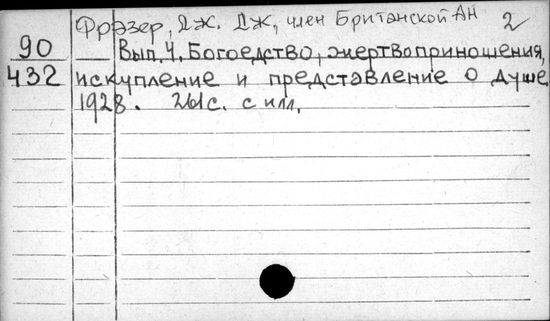 Фрэзер, Дж. Дж, член Британской АН 2
90 Вып. 4. Богоедство, жертвоприношения,
432 искупление и представление о душе
1928. 261с. с илл.